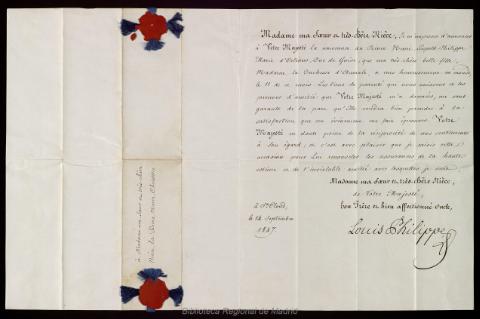 Madame ma Sœur et très chère Nièce, Je m'empresse d'annoncer
à Votre Majesté la naissance du Prince Henri Léopold Philippe
Marie d'Orléans, Duc de Guise, que ma très chère belle fille,
Madame la Duchesse d'Aumale, a mis heureusement au monde,
le 11 de ce mois. Les liens de parenté qui nous unissent et les
preuves d'amitié que Votre Majesté m'a données, me sont
garants de la part qu'Elle voudra bien prendre à la
satisfaction que cet événement me fait éprouver. Votre
Majesté ne doute point de la réciprocité de mes sentimens
à Son égard, et c'est avec plaisir que je saisis cette
occasion pour Lui renouveler les assurances de la haute
estime et de l'inviolable amitié avec lesquelles je suis,
Madame ma Sœur et très chère Nièce,
de Votre Majesté,
bon Frère et bien affectionné Oncle,
Louis Philippe
à St Cloud,
le 14 Septembre
1847.
à Madame ma Sœur et très chère
Nièce la Reine
Biblioteca Regional de Madrid